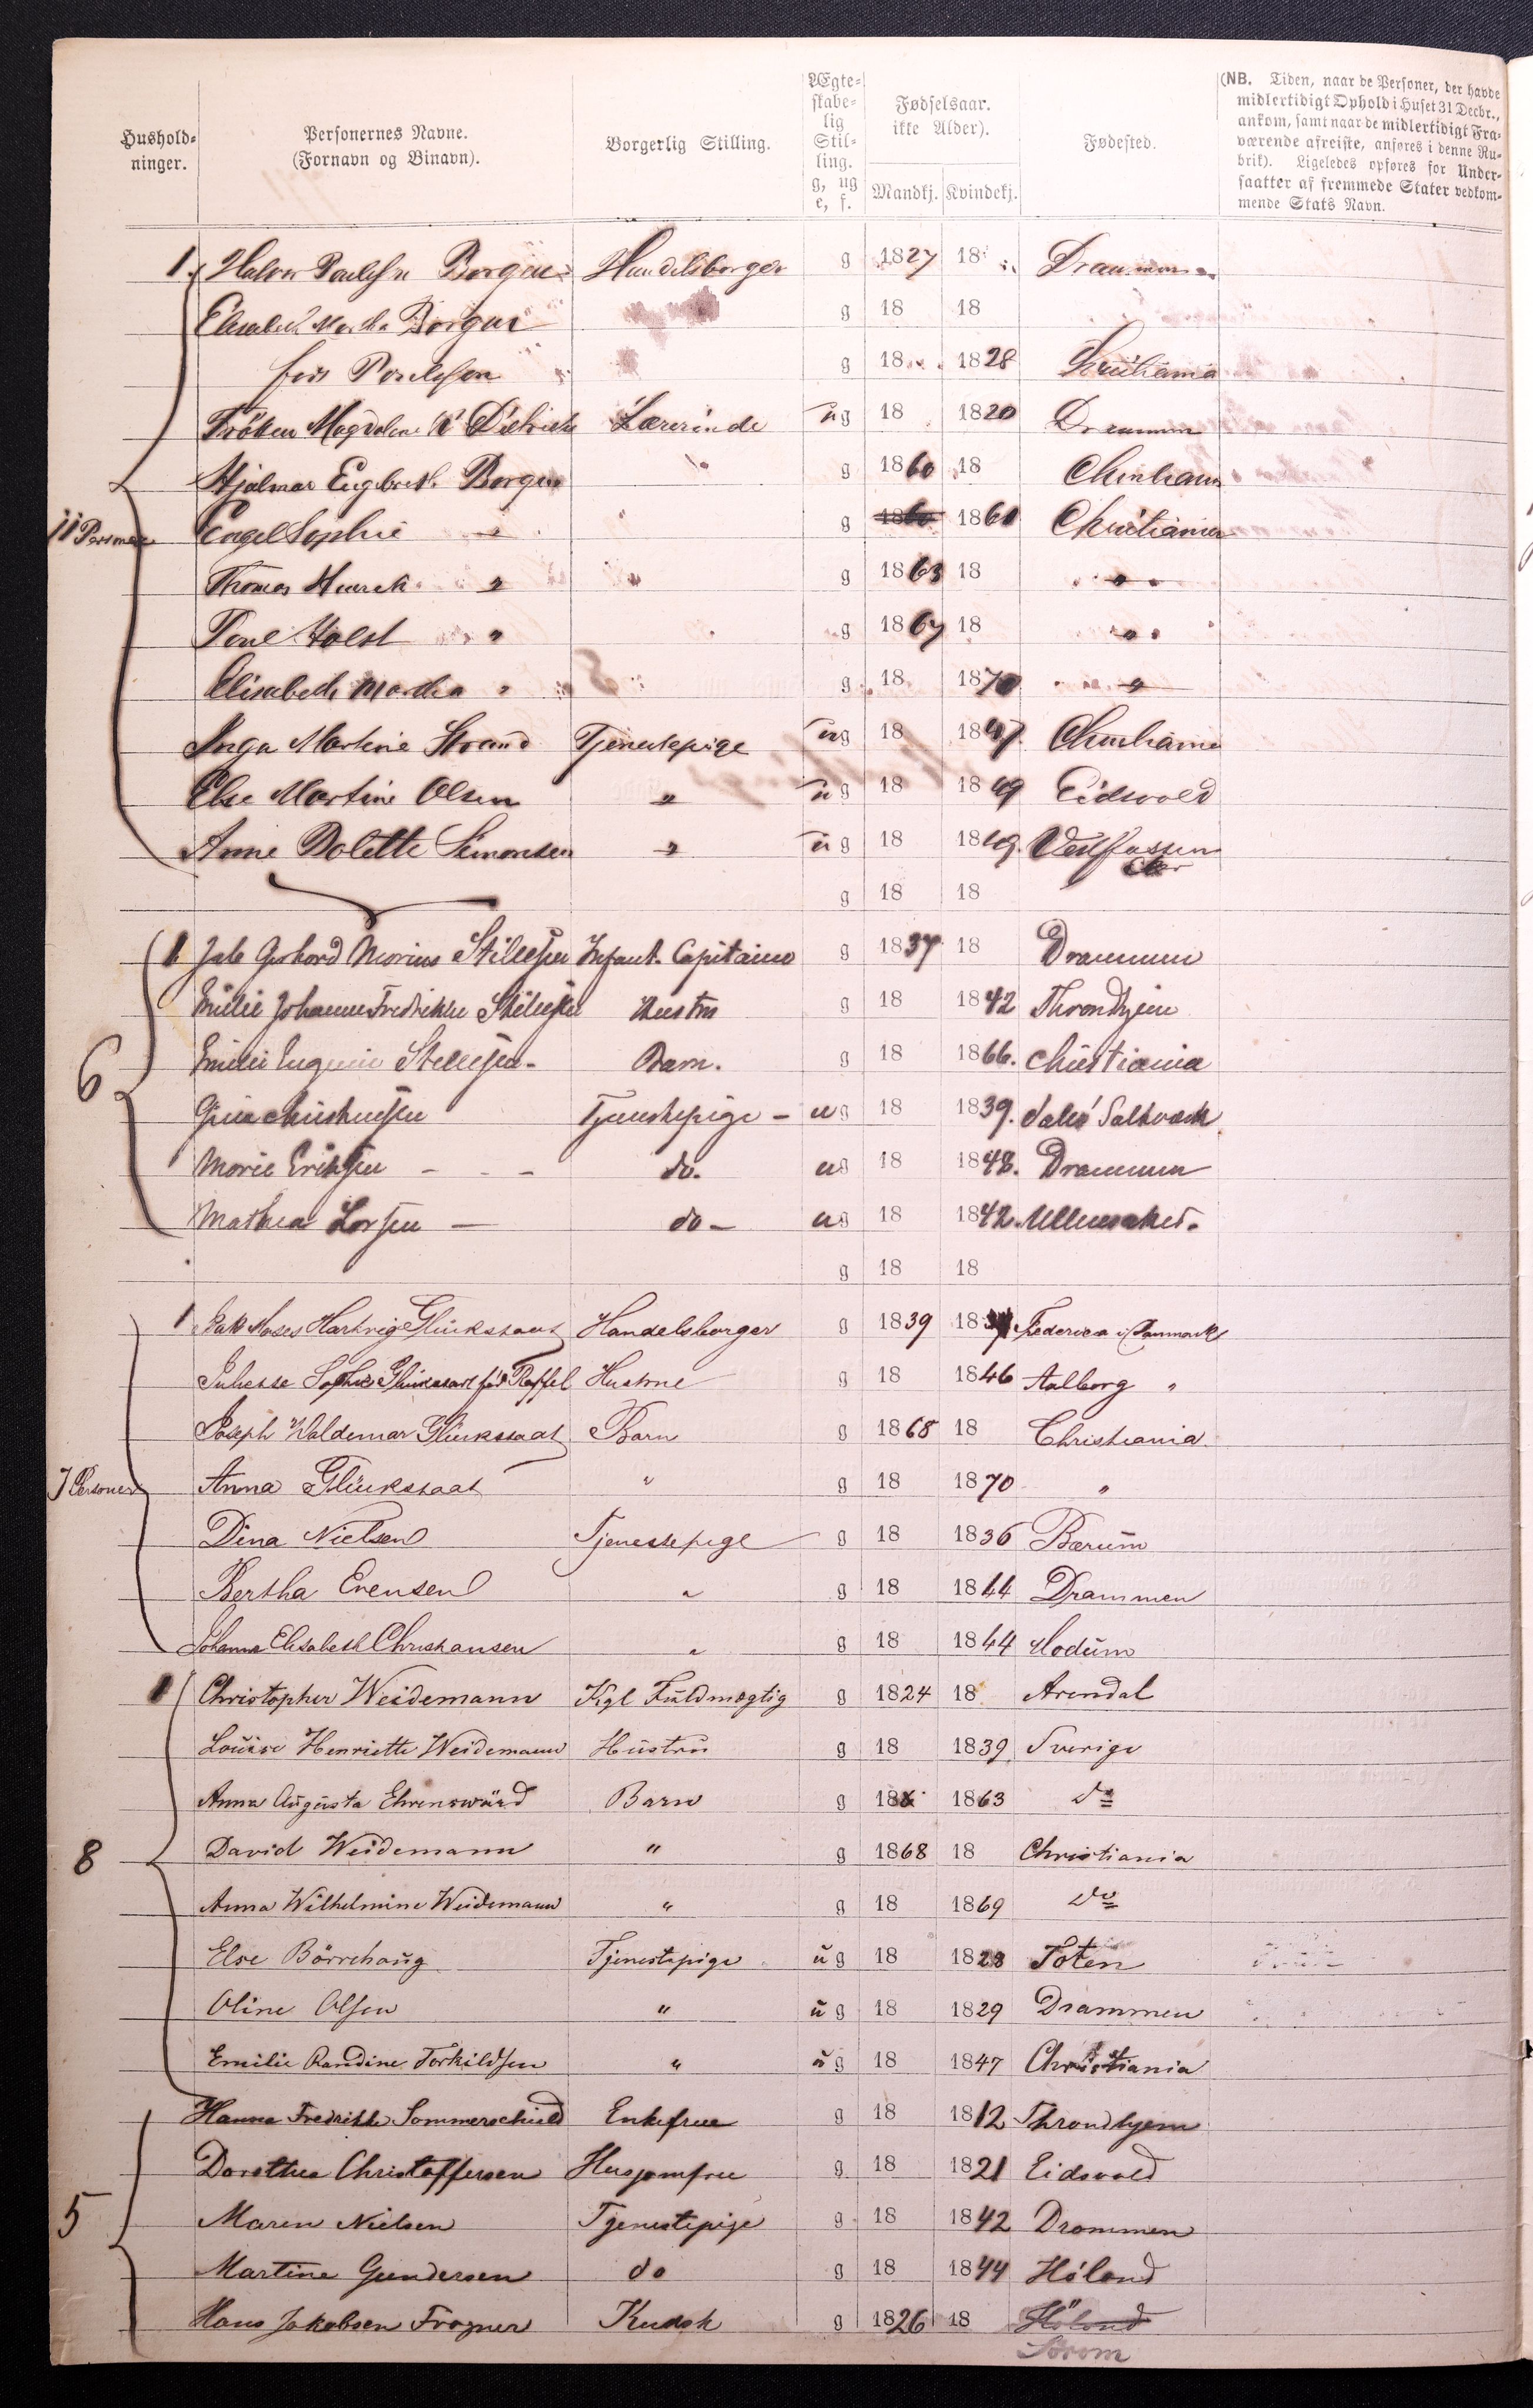 Hushold-
ninger.
Personernes Navne.
(Fornavn og Binavn).
Borgerlig Stilling.
Ægte-
skabe-
lig
Stil-
ling.
g, ug
e, f.
Fødselsaar.
ikke Alder).
Mandkj. Kvindekj.
Fødested.
(NB. Tiden, naar de Personer, der havde
midlertidigt Ophold i Huset 31 Decbr.,
ankom, samt naar de midlertidigt Fra-
værende afreiste, anføres i denne Ru-
brik). Ligeledes opføres for Under-
saatter af fremmede Stater vedkom-
mende Stats Navn.
1. Halvor Borgen Handelsborger g 1827 18 Drammen
Elisabeth Martha Borgen g 18 18
g 18 1828 Christiania
Frøken Magdalene Lærerinde ug 18 1820 Drammen
Hjalmar Engebret Borgen g 1860 18 Christiania
11 Personer Engel Sophie " g 1860 1861 Christiania
Thomas " " g 1863 18 "
Poul Holst " g 1867 18 "
Elisabeth Martha " g 18 1870 "
Inga Martine Strand Tjenestepige ug 18 1847 Christiania
Else Martine Olsen " ug 18 1849 Eidsvold
Anne Dolette Simonsen " ug 18 1849 Vestfossen
Eker
g 18 18
1 Gerhard Marius Stillesen Infant. Capitaine g 1837 18 Drammen
Emilie Johanne Fredrikke Stillesen Hustru g 18 1842 Throndhjem
6 Emilie Eugenie Stillesen Barn. g 18 1866. Christiania
Tjenestepige ug 18 1839.
Marie Eriksen do. ug 18 1848. Drammen
Mathea Larsen do ug 18 1842. Ullensaker.
g 18 18
1 Moses Hartvig Glückstaat Handelsborger g 1839 18 Fredericia i Danmark
Sophie Glückstaat fød Raffel Hustrue g 18 1846 Aalborg "
Joseph Waldemar Glückstaat Barn g 1868 18 Christiania
7 Personer Anna Glückstaat " g 18 1870 "
Dina Nielsen Tjenestepige g 18 1836 Bærum
Bertha Evensen " g 18 1844 Drammen
Johanna Elisabeth Christiansen " g 18 1844 Modum
1 Christopher Weidemann Kgl Fuldmægtig g 1824 18 Arendal
Louise Henriette Weidemann Hustru g 18 1839 Sverige
Anna Augusta Ehrenswärd Barn g 18 1863 do
8 David Weidemann " g 1868 18 Christiania
Anna Wilhelmine Weidemann " g 18 1869 do
Else Börrehaug Tjenestepige ug 18 1828 Toten
Oline Olsen " ug 18 1829 Drammen
Emilie Randine Torkildsen " ug 18 1847 Christiania
Hanna Fredrikke Sommerschield Enkefrue g 18 1812 Throndhjem
Dorothea Christoffersen Husjomfru g 18 1821 Eidsvold
5 Maren Nielsen Tjenestepige g 18 1842 Drammen
Martine Gundersen do g 18 1844 Höland
Hans Jakobsen Frogner Kudsk g 1826 18 Höland
Sörum